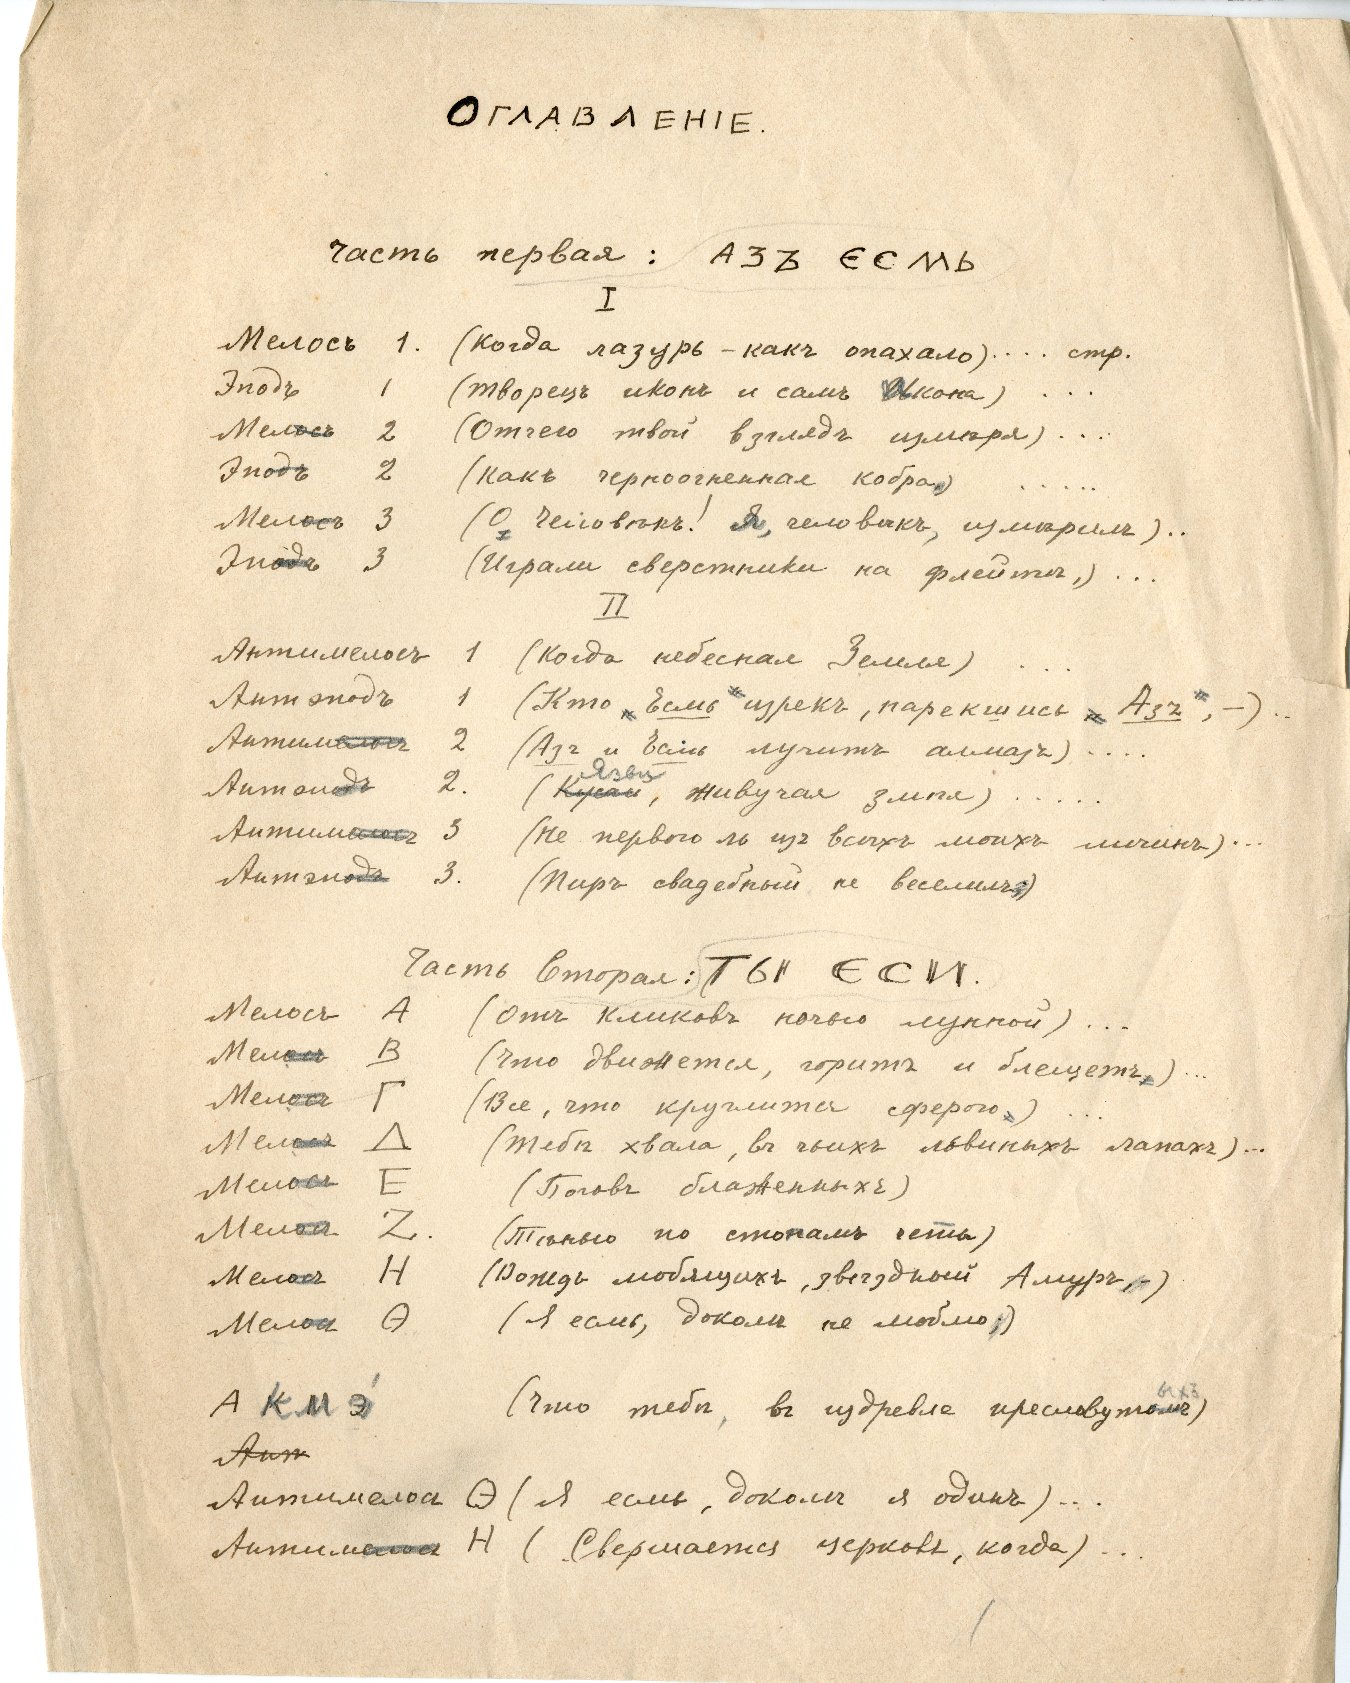 ОГЛАВЛЕНІЕ.
Часть первая: АЗЪ ЄСМЬ
I
Мелосъ 1. (Когда лазурь – какъ опахало).... стр.
Эподъ 1 (Творецъ иконъ и самъ Икона) ...
Мелосъ 2 (Отчего твой взглядъ измѣря) ...
Эподъ 2 (Какъ черноогненная кобра,) .....
Мелосъ 3 (О, Человѣкъ! Я, человѣкъ, измѣрилъ)..
Эподъ 3 (Играли сверстники на флейтѣ,) ...
II
Антимелосъ 1 (Когда небесная Земля) ...
Антэподъ 1 (Кто „Есмь" изрекъ, нарекшись „Азъ", –)..
Антимелосъ 2 (Азъ и Есмь лучитъ алмазъ) ....
Антэподъ 2. (Кусай Язви, живучая змѣя) .....
Антимелосъ 3 (Не первого ль изъ всѣхъ моихъ личинъ)...
Антэподъ 3. (Пиръ свадебный не веселилъ;)
Часть вторая: ТЫ ЄСИ.
Мелосъ А (Отъ кликовъ ночью лунной) ...
Мелосъ В (Что движется, горитъ и блещетъ,) ...
Мелосъ Г (Все, что круглится сферою,) ...
Мелосъ Δ (Тебѣ хвала, въ чьихъ львиныхъ лапахъ)...
Мелосъ Е (Боговъ блаженныхъ)
Мелосъ Z. (Тѣнью по стопамъ четы)
Мелосъ Н (Вождь любящихъ, звѣздный Амуръ, –)
Мелосъ Θ (Я есмь, доколѣ не люблю;)
АКМЭ (Что тебѣ, въ издревле пресловутомъ ыхъ)
Ант
Антимелосъ Θ (Я есмь, доколѣ я одинъ)...
Антимелосъ Н (Свершается церковь, когда) ...